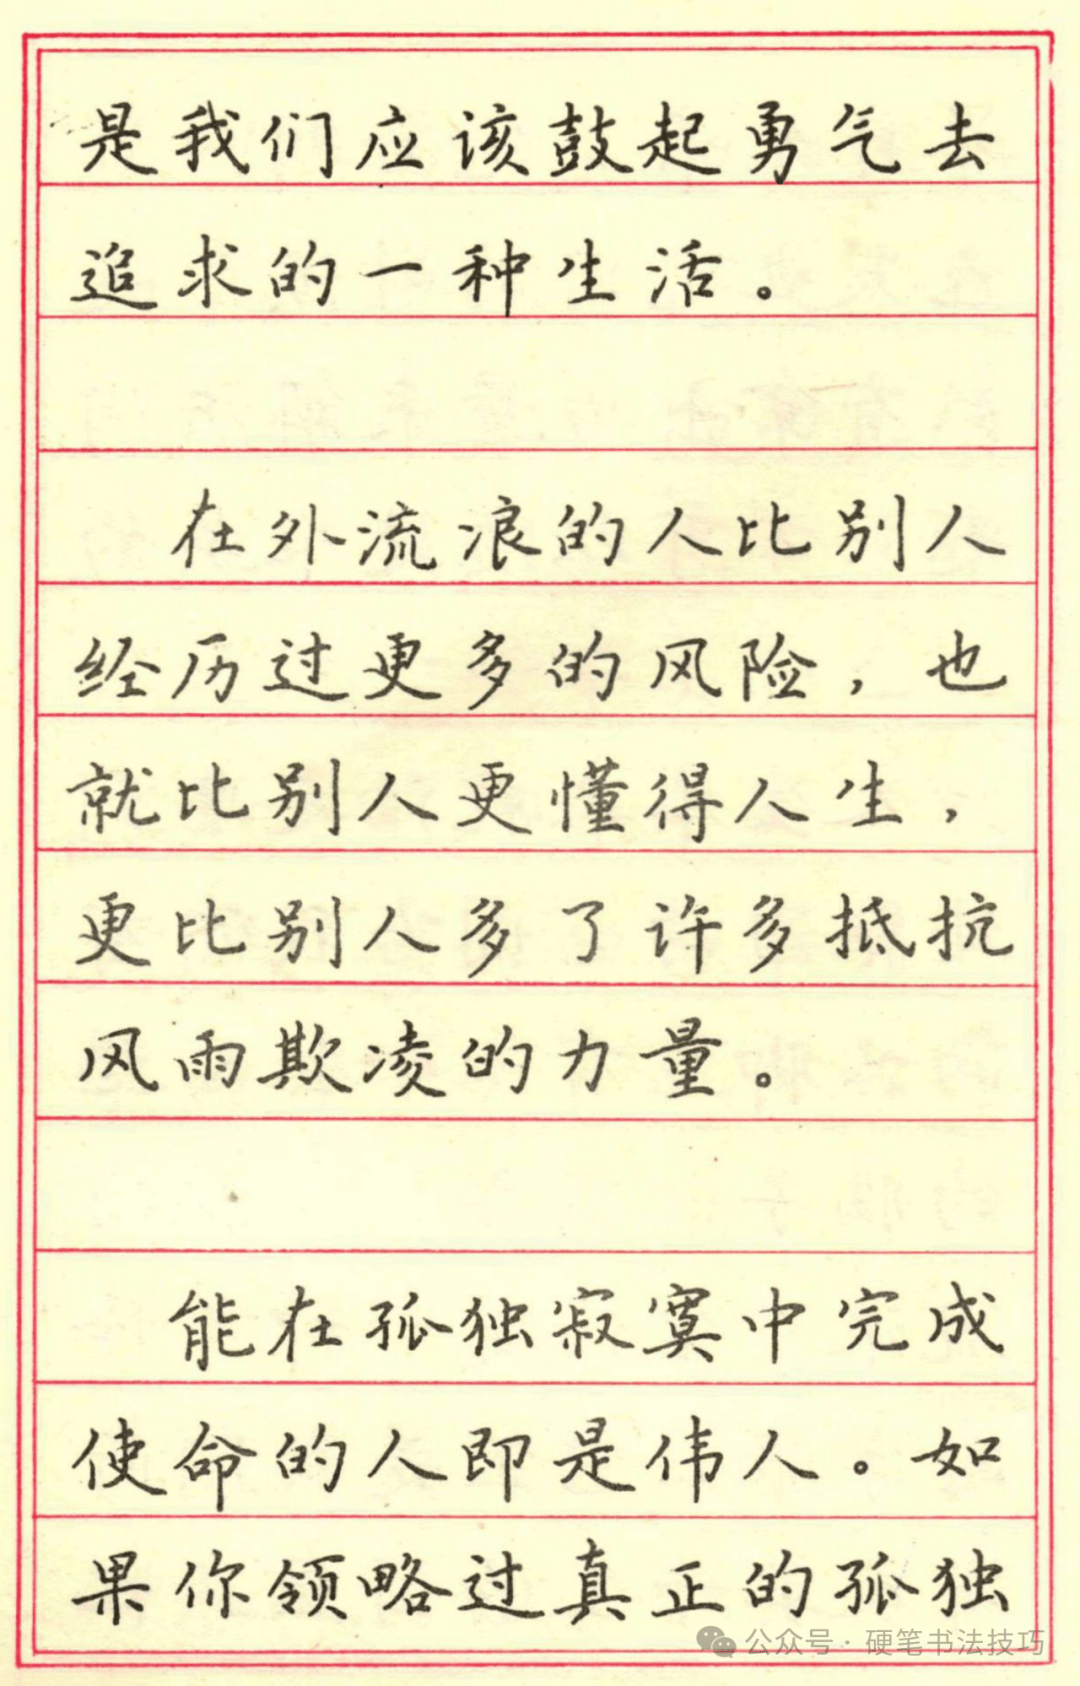 是我们应该鼓起勇气去
追求的一种生活。
在外流浪的人比别人
经历过更多的风险，也
就比别人更懂得人生，
更比别人多了许多抵抗
风雨欺凌的力量。
能在孤独寂寞中完成
使命的人即是伟人。如
果你领略过真正的孤独
公众号·硬笔书法技巧